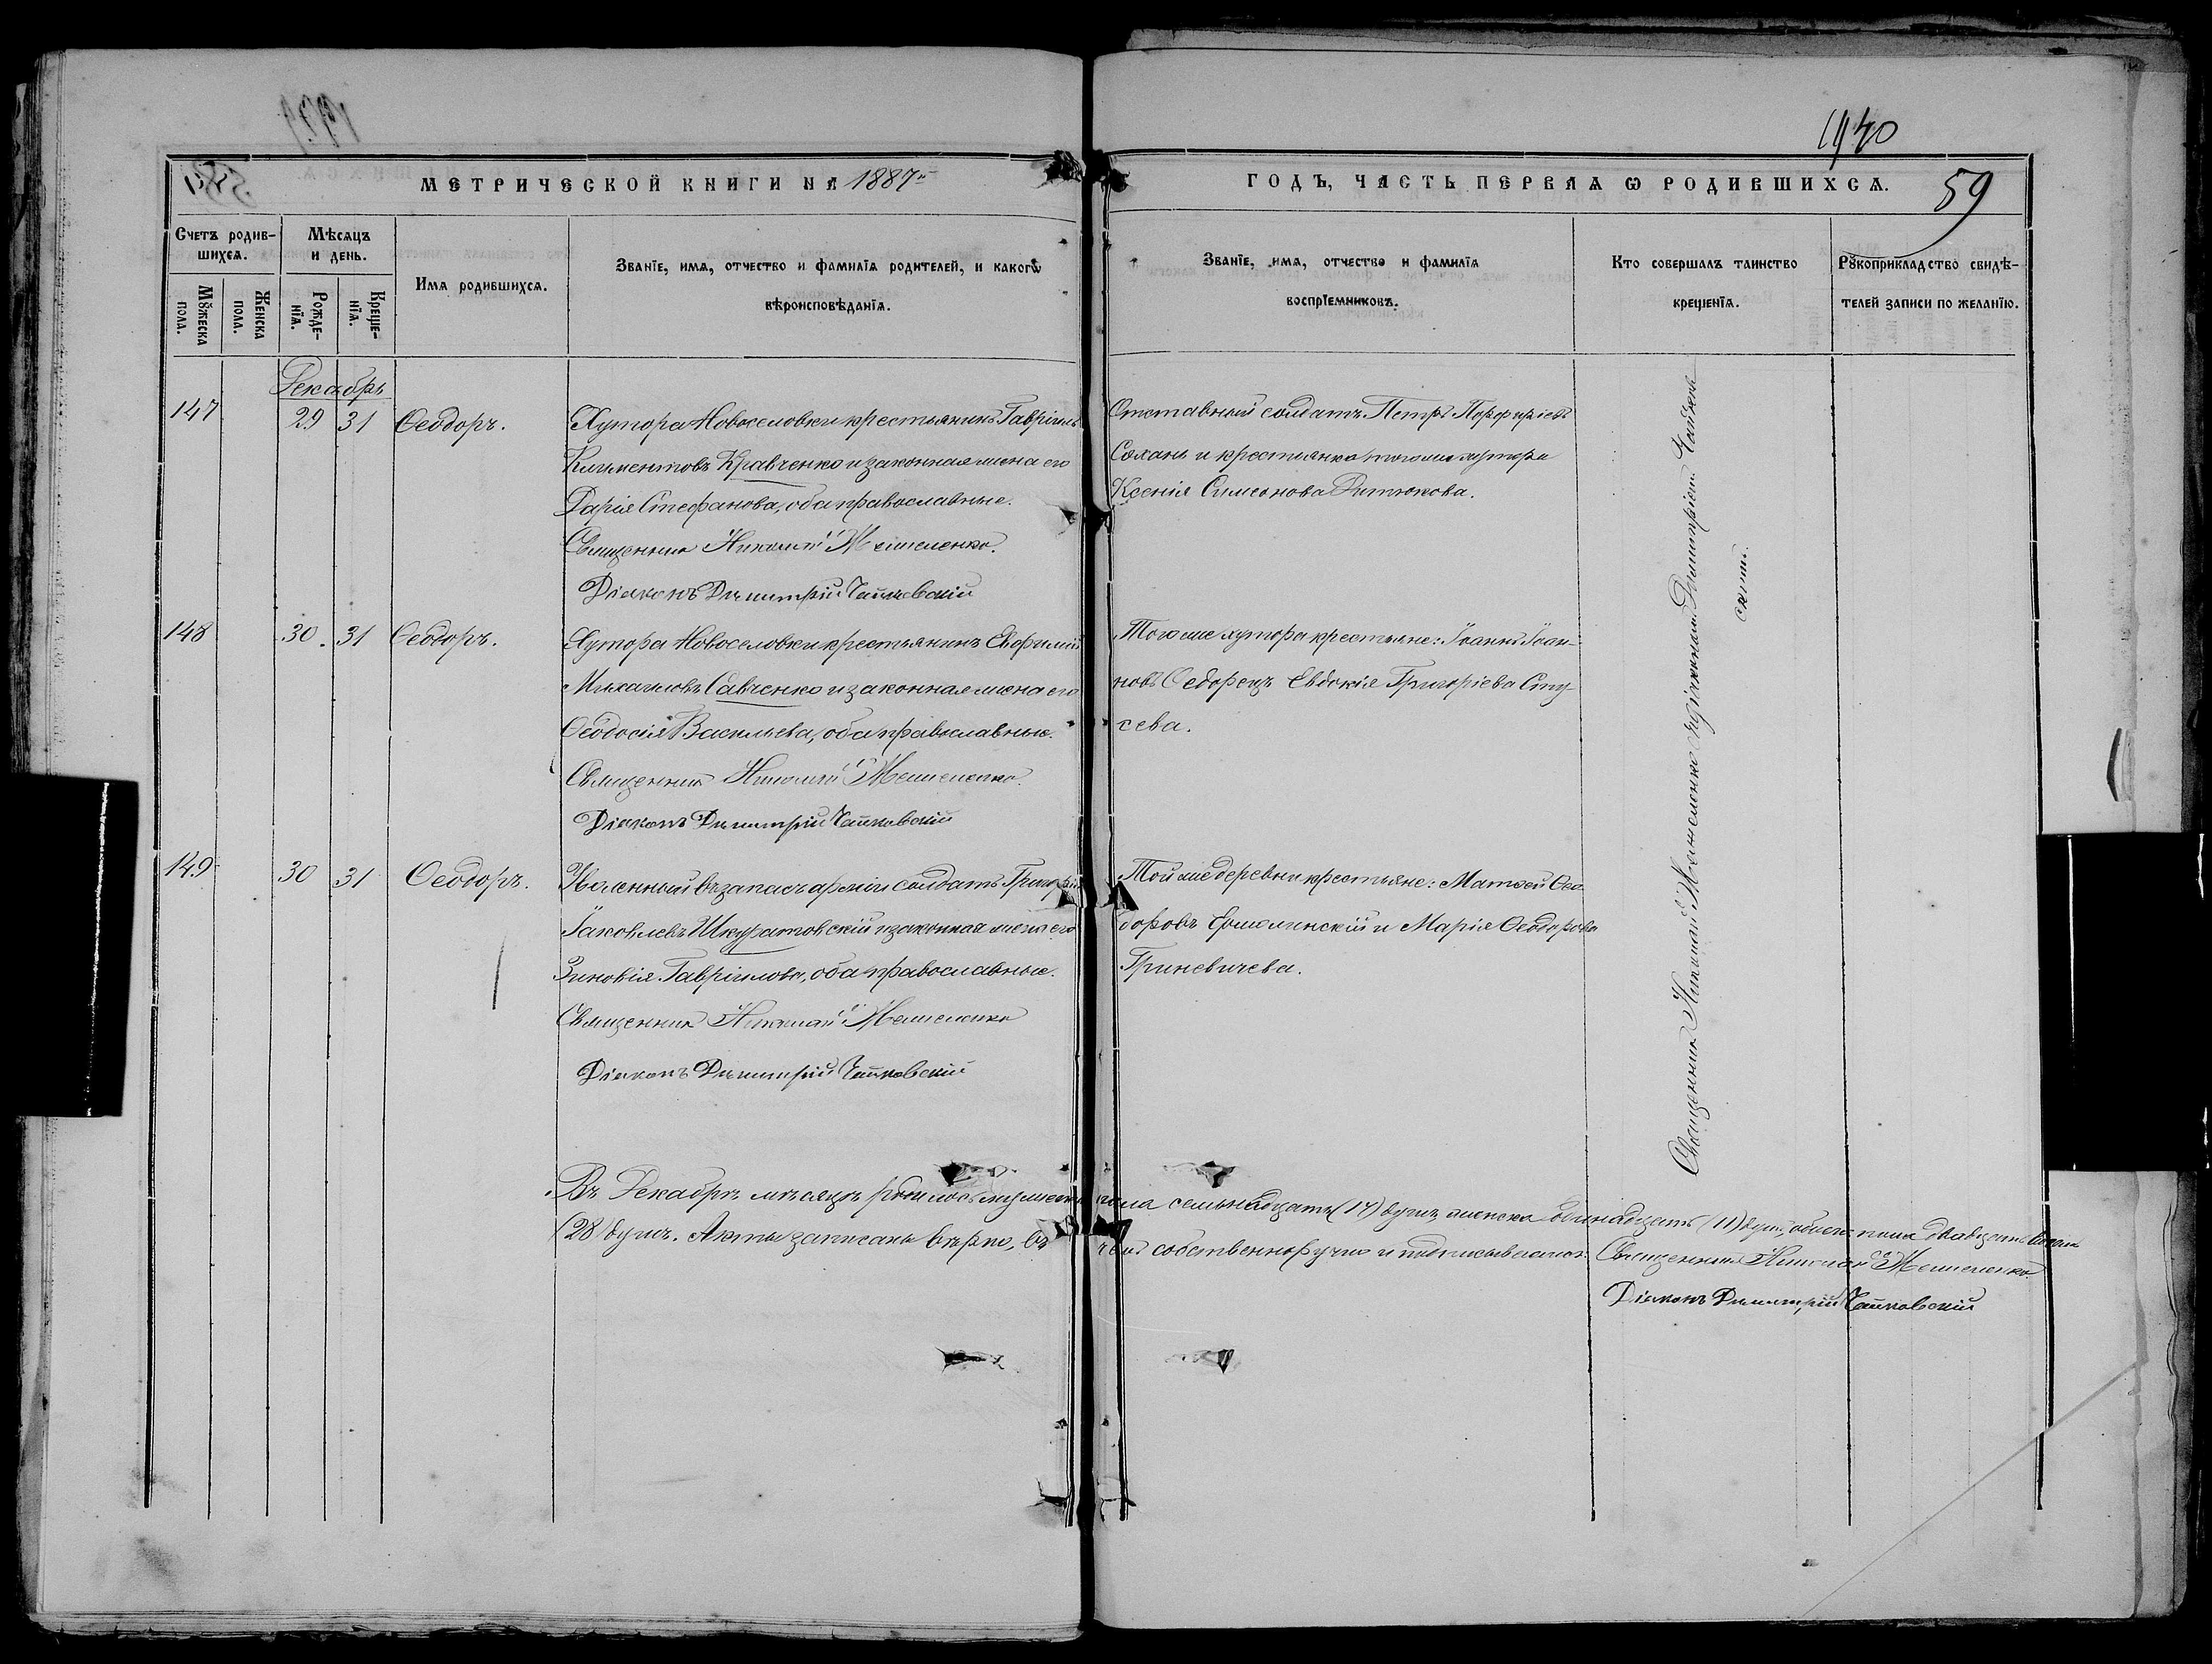 1440
МЕТРИЧЕСКОЙ КНИГИ НА 1887й
ГОДЪ, ЧАСТЬ ПЕРВАѦ Ѡ РОДИВШИХСѦ.
59
Счетъ родив-
шихсѧ.
Мꙋжеска
пола.
Женска
пола.
Мѣсѧцъ
и день.
Рожде-
нїѧ.
Креще-
нїѧ.
Имѧ родившихсѧ.
Званїе, имѧ, отчество и фамилїѧ родителей, и какогѡ
вѣроисповѣданїѧ.
Званїе, имѧ, отчество и фамилїѧ
воспрїемниковъ.
Кто совершалъ таинство
крещенїѧ.
Рꙋкоприкладство свидѣ-
телей записи по желанїю.
Декабрь
147
29
31
Ѳеодоръ.
Хутора Новоселовки крестьянинъ Гавріилъ
Климентовъ Кравченко и законная жена его
Дарія Стефанова, оба православные.
Священникъ Николай
Діаконъ Димитрій Чайковскій
Отставный солдатъ Петръ Порфиріевъ
Сохань и крестьянка того же хутора
Ксенія Симеонова
148
30
31
Ѳеодоръ.
Хутора Новоселовки крестьянинъ Евфимій
Михаиловъ Савченко и законная жена его
Ѳеодосія Васильева, оба православные.
Священникъ Николай
Діаконъ Димитрій Чайковскій
Того же хутора крестьяне: Іоаннъ Іоан-
новъ Ѳедорецъ Евдокія Григоріева
сева.
149
30
31
Ѳеодоръ.
Уволенный въ запасъ арміи солдатъ Григорій
Іаковлевъ Шкуратовскій и законная жена его
Зиновія Гавріилова, оба православные.
Священникъ Николай
Діаконъ Димитрій Чайковскій
Той же деревни крестьяне: Матѳей Ѳео-
доровъ Ермолинскій и Марія Ѳеодорова
Гриневичева.
Священникъ Николай съ діакономъ Димитріемъ Чайков-
скимъ.
Въ Декабрѣ мѣсяцѣ родилось мужеска пола семьнадцать (17) душъ, женска одинадцать (11) душъ, обоего пола двадцать восемь
(28) душъ. Акты записаны вѣрно, въ чемъ собственноручно и подписываемся: Священникъ Николай
Діаконъ Димитрій Чайковскій